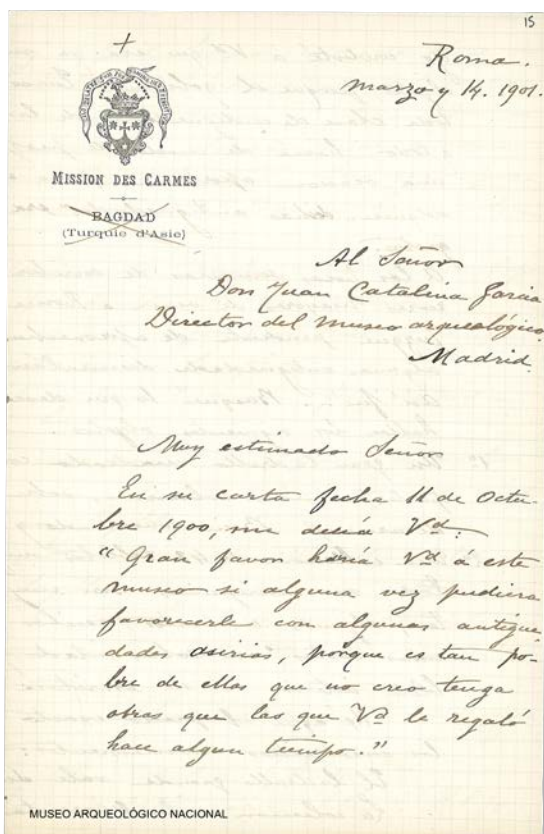 15
Roma.
marzo y 14. 1901.
MISSION DES CARMES
BAGDAD
(Turquie d'Asie)
Al Señor
Don Juan Catalina Garcia
Director del museo arqueológico.
Madrid.
Muy estimado Señor
En su carta fecha 11 de Octu-
bre 1900, me decía Vd:
"Gran favor haría Vd á este
museo si alguna vez pudiera
favorecerle con algunas antigüe
dades asirias, porque es tan po-
bre de ellas que no creo tenga
otras que las que Vd le regaló
hace algun tiempo."
MUSEO ARQUEOLÓGICO NACIONAL